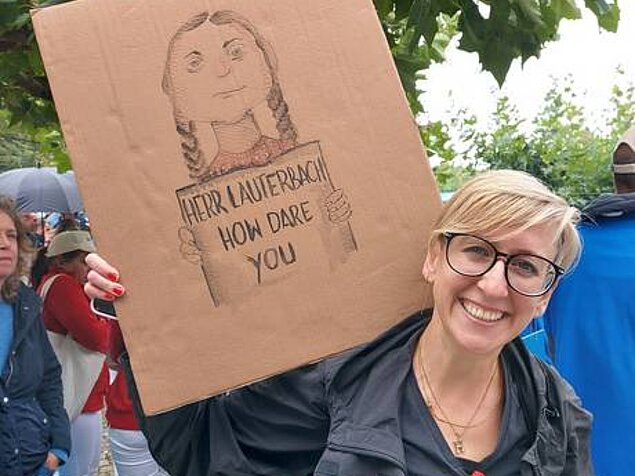 HERR LAUTERBACH
HOW DARE
YOU